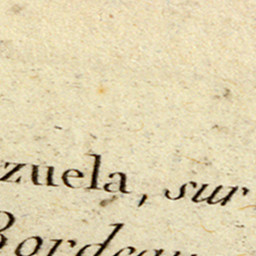 zuela, sur
Bordeau